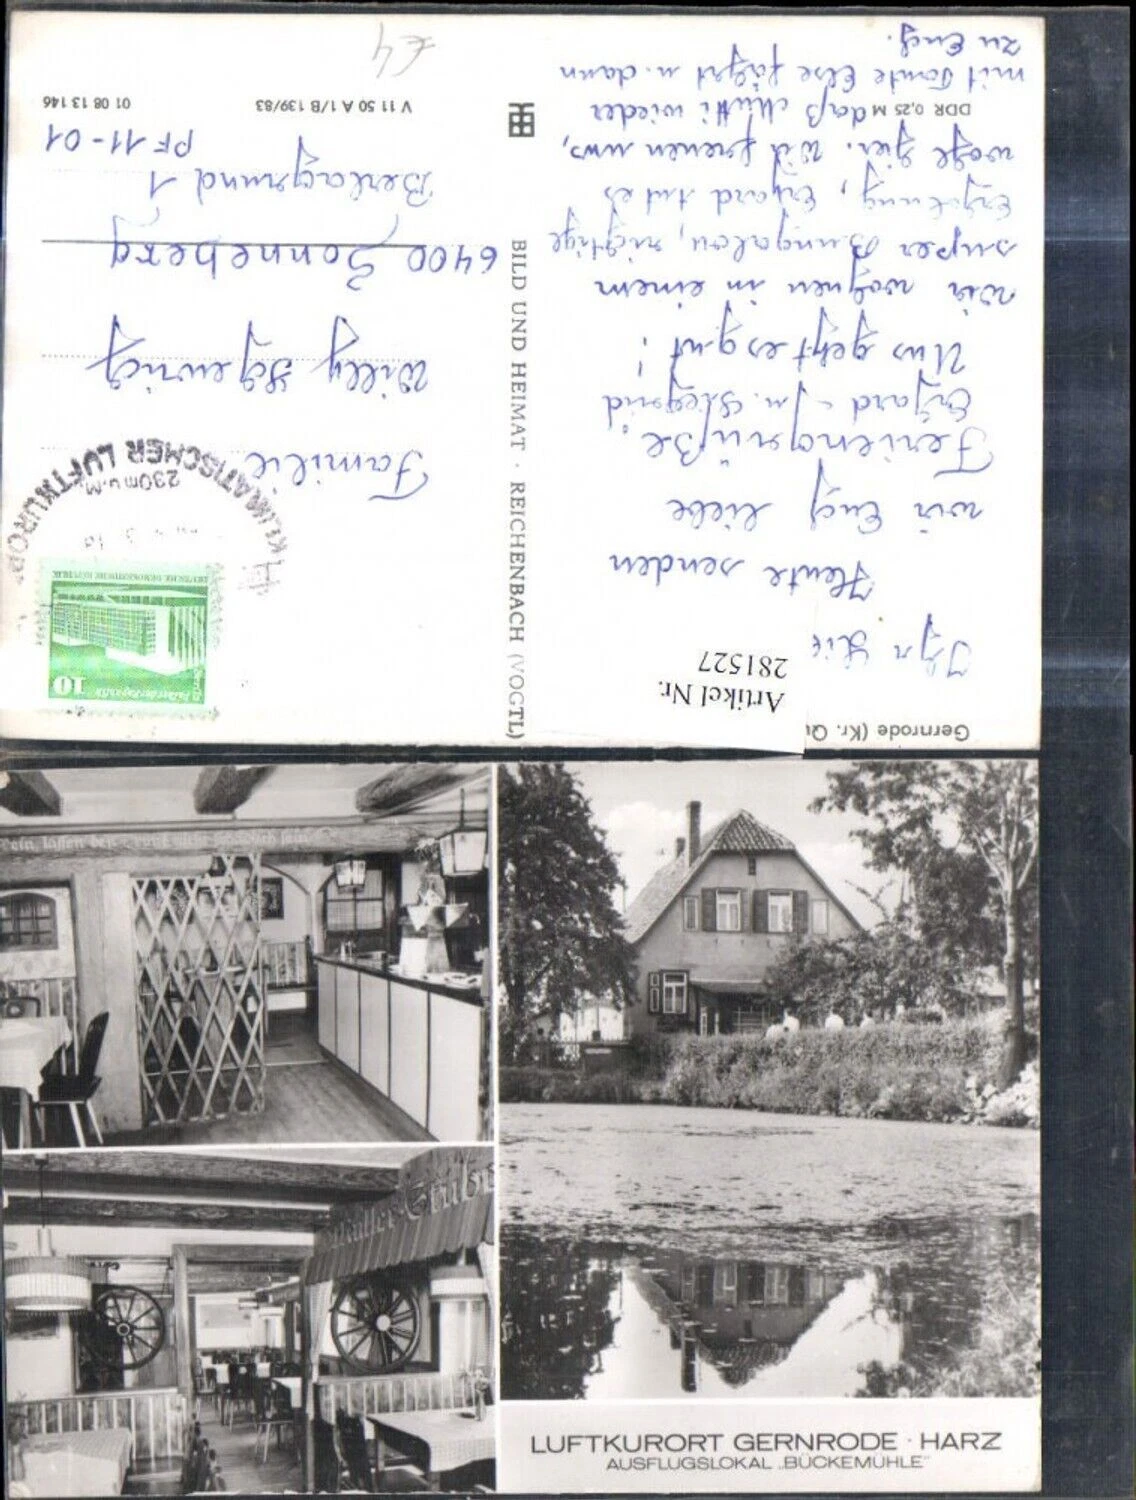 Gernrode (Kr. Qu
Artikel Nr.
281527
Ihr
Heute senden
wir Euch liebe
Feriengrüße.
Erhard - u. Siegrid
Uns geht es gut!
wir wohnen in einem
super Bungalow, richtige
Erholung, Erhard tut es
wohl hier. Wir freuen uns,
DDR 0,25 M
daß Mutti wieder
mit Tante Else fährt u. dann
zu Euch.
BILD UND HEIMAT · REICHENBACH (VOGTL)
10
DEUTSCHE DEMOKRATISCHE REPUBLIK
KLIMATISCHER LUFTKURORT
230m ü.M.
Familie
Willy
6400 Sonneberg
Berlagrund 1
PF 11-01
V 11 50 A 1/B 139/83
01 08 13 146
€4
LUFTKURORT GERNRODE · HARZ
AUSFLUGSLOKAL „BÜCKEMÜHLE"